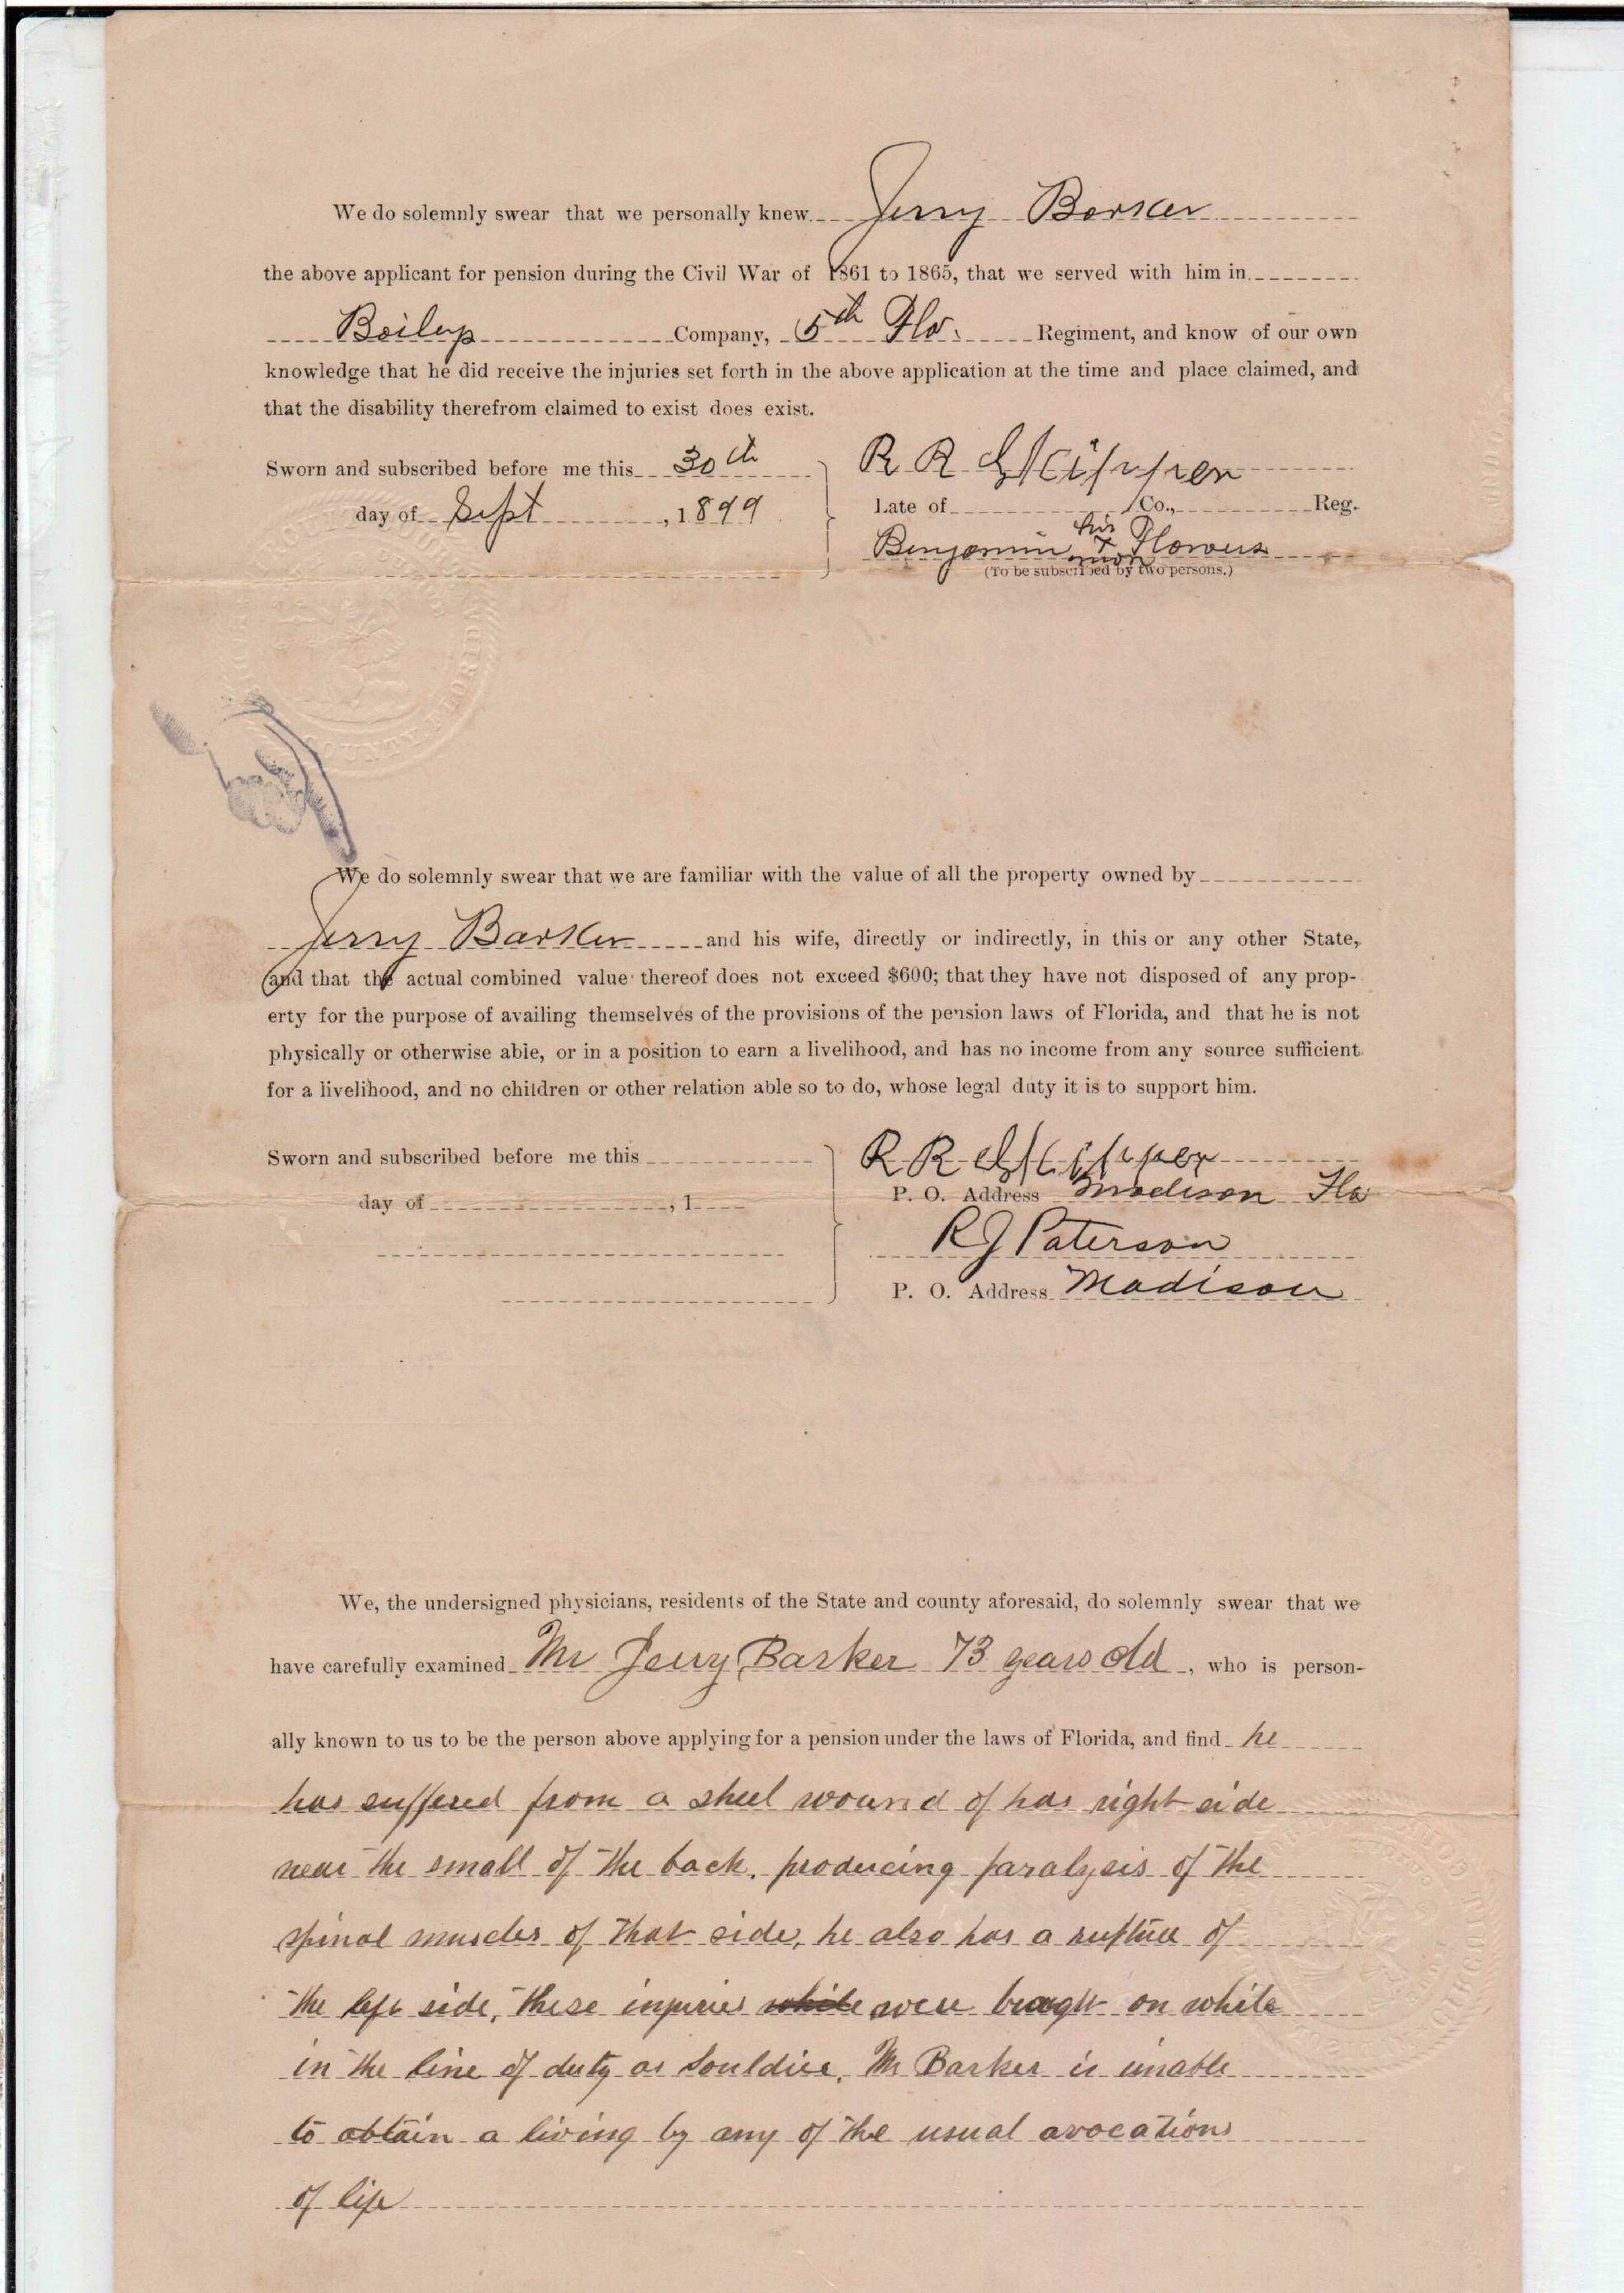 We do solemnly swear that we personally knew Jerry Barker
the above applicant for pension during the Civil War of 1861 to 1865, that we served with him in
Company, 5th Fla. Regiment, and know of our own
knowledge that he did receive the injuries set forth in the above application at the time and place claimed, and
that the disability therefrom claimed to exist does exist.
Sworn and subscribed before me this 30th
day of Sept, 1899
R R Skipper
Late of Co., Reg.
his
Benjamin x Flowers
(To be subscribed by two persons.)
COUNTY FLORIDA
We do solemnly swear that we are familiar with the value of all the property owned by
Jerry Barker and his wife, directly or indirectly, in this or any other State,
and that the actual combined value thereof does not exceed $600; that they have not disposed of any prop-
erty for the purpose of availing themselves of the provisions of the pension laws of Florida, and that he is not
physically or otherwise able, or in a position to earn a livelihood, and has no income from any source sufficient
for a livelihood, and no children or other relation able so to do, whose legal duty it is to support him.
Sworn and subscribed before me this
day of , 1
R R Skipper
P. O. Address Madison Fla
R J Paterson
P. O. Address Madison
We, the undersigned physicians, residents of the State and county aforesaid, do solemnly swear that we
have carefully examined Mr Jerry Barker 73 years old, who is person-
ally known to us to be the person above applying for a pension under the laws of Florida, and find he
has suffered from a shell wound of has right side
near the small of the back. producing paralysis of the
spinal muscles of that side, he also has a rupture of
the left side, these injuries while were brought on while
in the line of duty as Souldier. Mr Barker is unable
to obtain a living by any of the usual avocations
of life